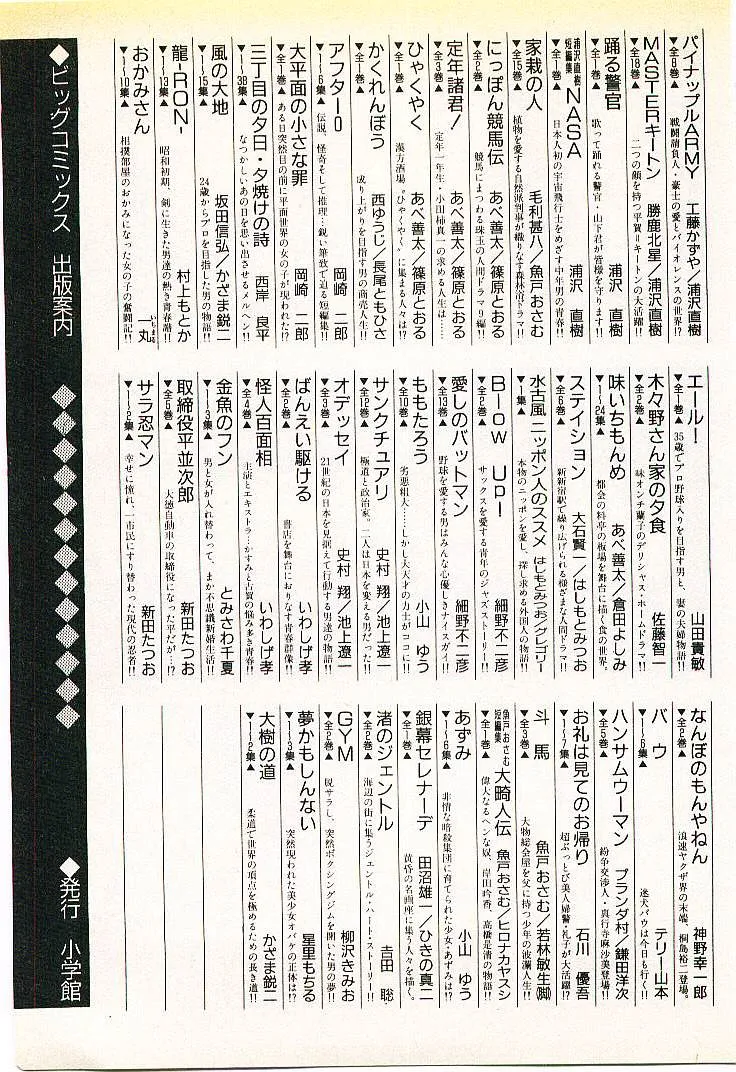 パイナップルARMY 工藤かずや／浦沢直樹
▼全8巻▲ 戦闘請負人・豪士の愛とバイオレンスの世界!?
MASTERキートン 勝鹿北星／浦沢直樹
▼全18巻▲ 二つの顔を持つ平賀＝キートンの大活躍!!
踊る警官 浦沢 直樹
▼全1巻▲ 歌って踊れる警官・山下君が皆様を守ります!!
浦沢直樹短編集 NASA 浦沢 直樹
▼全1巻▲ 日本人初の宇宙飛行士をめざす中年男の青春!!
家栽の人 毛利甚八／魚戸おさむ
▼全15巻▲ 植物を愛する自然派判事が織りなす森林浴ドラマ!!
にっぽん競馬伝 あべ善太／篠原とおる
▼全2巻▲ 競馬にまつわる珠玉の人間ドラマ9編!!
定年諸君！ あべ善太／篠原とおる
▼全3巻▲ 定年一年生・小田柿真一の求める人生は……
ひゃくやく あべ善太／篠原とおる
▼全1巻▲ 漢方酒場。“ひゃくやく”に集まる人々は!?
かくれんぼう 西ゆうじ／長尾ともひさ
▼全1巻▲ 成り上がりを目指す男の商売人生!!
アフター0 岡崎 二郎
▼1～6集▲ 伝説、怪奇そして推理…鋭い筆致で迫る短編集!!
大平面の小さな罪 岡崎 二郎
▼全1巻▲ ある日突然目の前に平面世界の女の子が現われた!?
三丁目の夕日・夕焼けの詩 西岸 良平
▼1～38集▲ なつかしいあの日を思い出させるメルヘン!!
風の大地 坂田信弘／かざま鋭二
▼1～15集▲ 24歳からプロを目指した男の物語!!
龍-RON- 村上もとか
▼1～13集▲ 昭和初期、剣に生きた男達の熱き青春譜!!
おかみさん 一丸
いちまる
▼1～10集▲ 相撲部屋のおかみになった女の子の奮闘記!!
エールー 山田貴敏
▼全1巻▲ 35歳でプロ野球入りを目指す男と、妻の夫婦物語!!
木々野さん家の夕食 佐藤智一
▼全2巻▲ 味オンチ蘭子のデリシャス・ホームドラマ!!
味いちもんめ あべ善太／倉田よしみ
▼1～24集▲ 都会の料亭の板場を舞台に描く食の世界。
ステイション 大石賢一／はしもとみつお
▼全6巻▲ 新新宿駅で繰り広げられる様ざまな人間ドラマ!!
水古風 ニッポン人のススメ はしもとみつお／グレゴリー
▼1集▲ 本物のニッポンを愛し、探し求める外国人の物語!!
BーOW UP！ 細野不二彦
▼全2巻▲ サックスを愛する青年のジャズストーリー!!
愛しのバットマン 細野不二彦
▼全13巻▲ 野球を愛する男はみんな心優しきナイスガイ!!
ももたろう 小山 ゆう
▼全10巻▲ 劣悪粗大……しかし大天才の力士がココに!!
サンクチュアリ 史村 翔／池上遼一
▼全12巻▲ 極道と政治家。二人は日本を変える男だった!!
オデッセイ 史村 翔／池上遼一
▼全3巻▲ 21世紀の日本を見据えて行動する男達の物語!!
ばんえい駆ける いわしげ孝
▼全2巻▲ 書店を舞台におりなす青春群像!!
怪人百面相 いわしげ孝
▼全4巻▲ 主演とエキストラ…かすみと古賀の悩み多き青春!!
金魚のフン とみさわ千夏
▼1～3集▲ 男と女が入れ替わって、まか不思議新婚生活!!
取締役平並次郎 新田たつお
▼全5巻▲ 大徳自動車の取締役になった平だが…!?
サラ忍マン 新田たつお
▼1～2集▲ 幸せに憧れ、一市民にすり替わった現代の忍者!!
なんぼのもんやねん 神野幸一郎
▼全2巻▲ 浪速ヤクザ界の末端、桐島裕二登場。
バウ テリー山本
▼1～6集▲ 迷犬バウは今日も行く!!
ハンサムウーマン ブランダ村／鎌田洋次
▼全5巻▲ 紛争交渉人・真行寺麻沙美登場!!
お礼は見てのお帰り 石川 優吾
▼1～7集▲ 超ぶっとび美人婦警・礼子が大活躍!?
斗馬 魚戸おさむ／若林敏生(脚)
▼全3巻▲ 大物総会屋を父に持つ少年の波瀾人生!!
魚戸おさむ短編集 大畸人伝 魚戸おさむ／ヒロナカヤスシ
▼全1巻▲ 偉大なるヘンな奴、岸田吟香、高橋是清の物語!!
あずみ 小山 ゆう
▼1～6集▲ 非情な暗殺集団に育てられた少女・あずみは!?
銀幕セレナーデ 田沼雄一／ひきの真二
▼全1巻▲ 黄昏の名画座に集う人々を描く。
渚のジェントル 吉田 聡
▼全2巻▲ 海辺の街に集うジェントル・ハート・ストーリー!!
GYM 柳沢きみお
▼全2巻▲ 脱サラし、突然ボクシングジムを開いた男の夢!!
夢かもしんない 星里もちる
▼1～3集▲ 突然現われた美少女オバケの正体は!?
大樹の道 かざま鋭二
▼1～2集▲ 柔道で世界の頂点を極めるための長き道!!
◆ビッグコミックス 出版案内 ◆◆◆◆◆◆◆◆◆◆◆◆◆ ◆発行 小学館